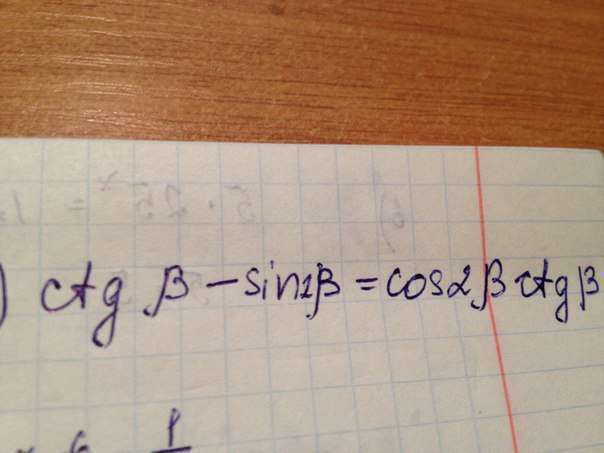 ) ctg β − sin2β = cos2β ctg β
1